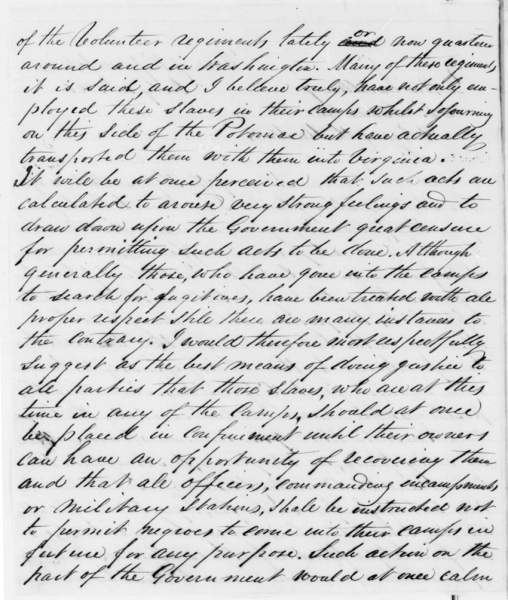 of the Volunteer regiments lately or now quartered
around and in Washington. Many of these regiments,
it is said, and I believe truly, have not only em-
ployed these slaves in their camps whilst sojourning
on this side of the Potomac but have actually
transported them with them into Virginia.
It will be at once perceived that such acts are
calculated to arouse very strong feelings and to
draw down upon the Government great censure
for permitting such acts to be done. Although
generally those, who have gone into the camps
to search for fugitives, have been treated with all
proper respect still there are many instances to
the contrary. I would therefore most respectfully
suggest as the best means of doing justice to
all parties that those slaves, who are at this
time in any of the camps, should at once
be placed in confinement until their owners
can have an opportunity of recovering them
and that all officers, commanding incampments
or military stations, shall be instructed not
to permit negroes to come into their camps in
future for any purpose. Such action on the
part of the Government would at once calm